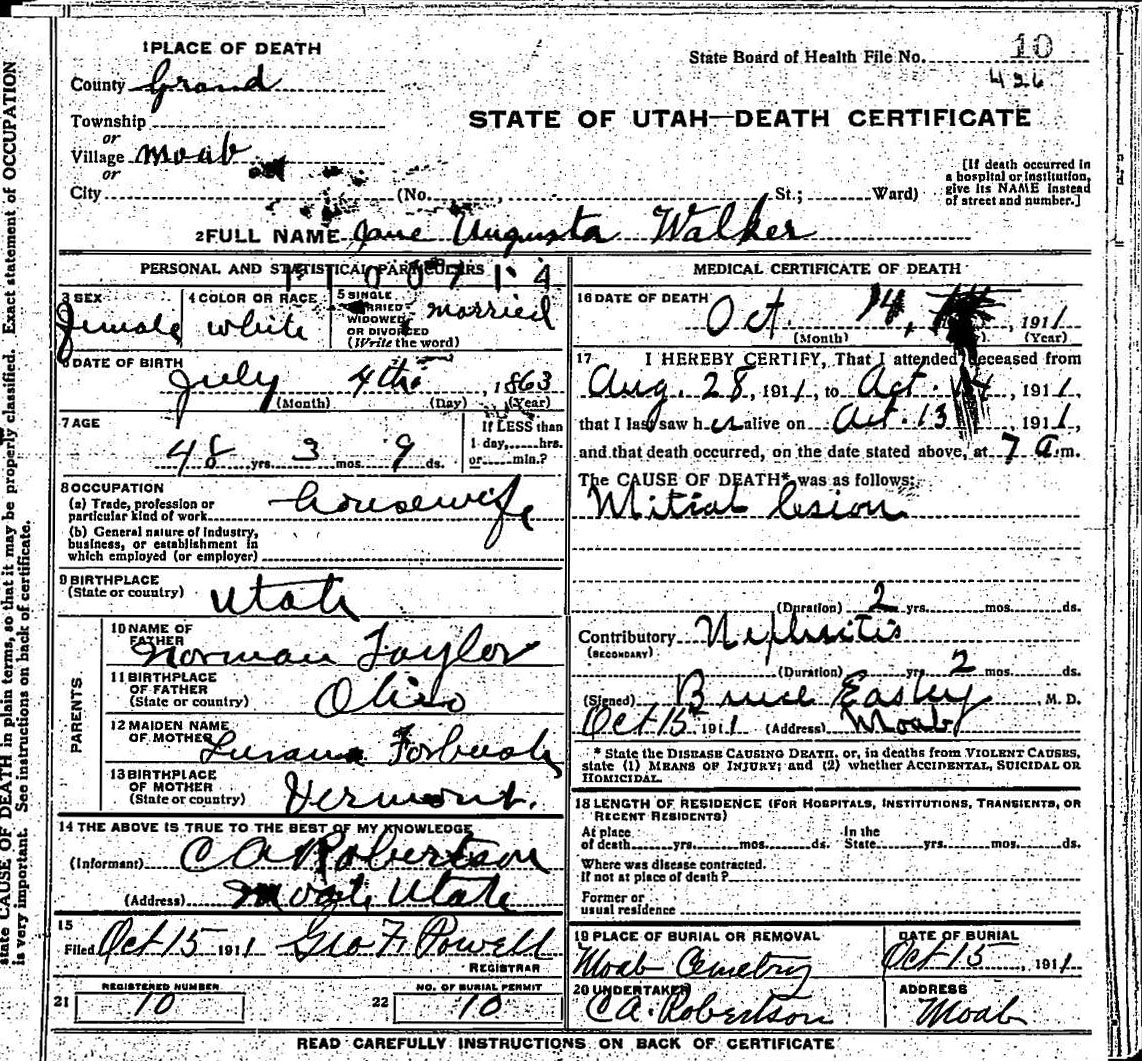 state CAUSE OF DEATH in plain terms, so that it may be properly classified. Exact statement of OCCUPATION
is very important. See instructions on back of certificate.
1 PLACE OF DEATH
County Grand
Township
or
Village Moab
or
City (No. St.; Ward)
State Board of Health File No. 10
426
STATE OF UTAH—DEATH CERTIFICATE
[If death occurred in
a hospital or institution,
give its NAME instead
of street and number.]
2 FULL NAME Jane Augusta Walker
PERSONAL AND STATISTICAL PARTICULARS
3 SEX
Female
4 COLOR OR RACE
white
5 SINGLE
MARRIED
WIDOWED
OR DIVORCED
(Write the word)
married
6 DATE OF BIRTH
July 4th, 1863
(Month) (Day) (Year)
7 AGE
48 yrs. 3 mos. 9 ds.
If LESS than
1 day, hrs.
or min.?
8 OCCUPATION
(a) Trade, profession or
particular kind of work
housewife
(b) General nature of industry,
business, or establishment in
which employed (or employer)
9 BIRTHPLACE
(State or country)
Utah
PARENTS
10 NAME OF
FATHER
Norman Taylor
11 BIRTHPLACE
OF FATHER
(State or country)
Ohio
12 MAIDEN NAME
OF MOTHER
Forbush
13 BIRTHPLACE
OF MOTHER
(State or country)
Vermont.
14 THE ABOVE IS TRUE TO THE BEST OF MY KNOWLEDGE
(Informant) C A Robertson
(Address) Moab Utah
15
Filed Oct 15 1911 Geo F. Powell
REGISTRAR
21 REGISTERED NUMBER
10
22 NO. OF BURIAL PERMIT
10
MEDICAL CERTIFICATE OF DEATH
16 DATE OF DEATH
Oct. 14, 1911
(Month) (Year)
17 I HEREBY CERTIFY, That I attended deceased from
Aug. 28, 1911, to Oct. 14, 1911,
that I last saw her alive on Oct. 13, 1911,
and that death occurred, on the date stated above, at 7 a.m.
The CAUSE OF DEATH* was as follows:
Mitral lesion
(Duration) 2 yrs. mos. ds.
Contributory Nephritis
(SECONDARY)
(Duration) yrs. 2 mos. ds.
(Signed) Bruce Easley, M. D.
Oct 15 1911 (Address) Moab
* State the DISEASE CAUSING DEATH, or, in deaths from VIOLENT CAUSES,
state (1) MEANS OF INJURY; and (2) whether ACCIDENTAL, SUICIDAL OR
HOMICIDAL.
18 LENGTH OF RESIDENCE (FOR HOSPITALS, INSTITUTIONS, TRANSIENTS, OR
RECENT RESIDENTS)
At place
of death yrs. mos. ds.
In the
State yrs. mos. ds.
Where was disease contracted.
If not at place of death?
Former or
usual residence
19 PLACE OF BURIAL OR REMOVAL
Moab Cemetry
DATE OF BURIAL
Oct 15, 1911
20 UNDERTAKER
C A. Robertson
ADDRESS
Moab
READ CAREFULLY INSTRUCTIONS ON BACK OF CERTIFICATE